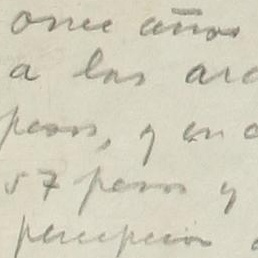 once años
a las
pesos, y en
57 pesos y
percepción